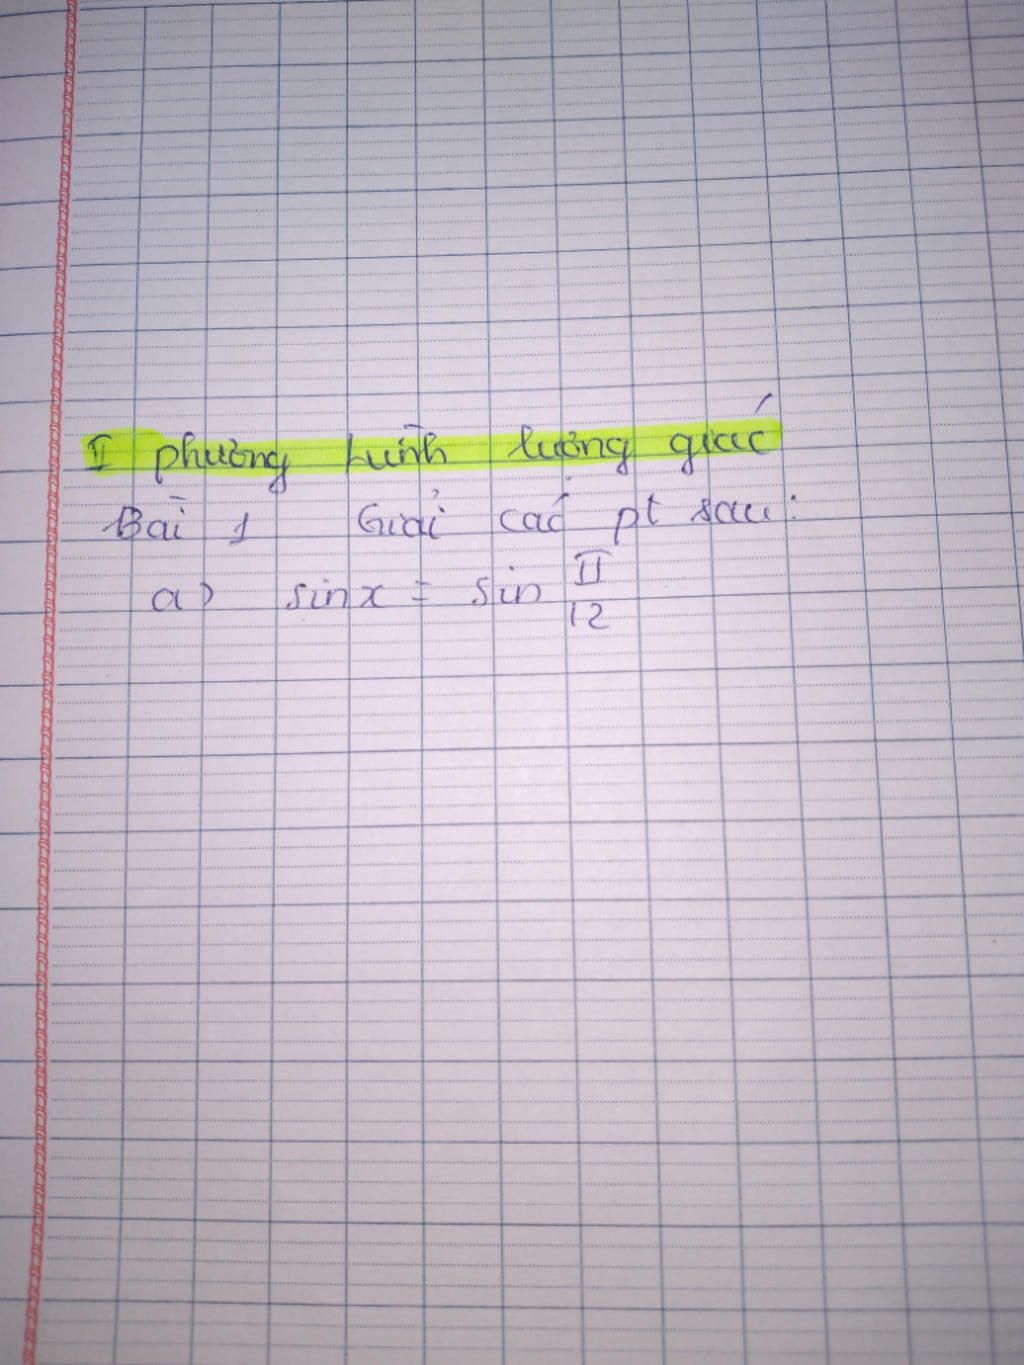 II phương trình lượng giác
Bài 1 Giải các pt sau:
a) sin x = sin π/12